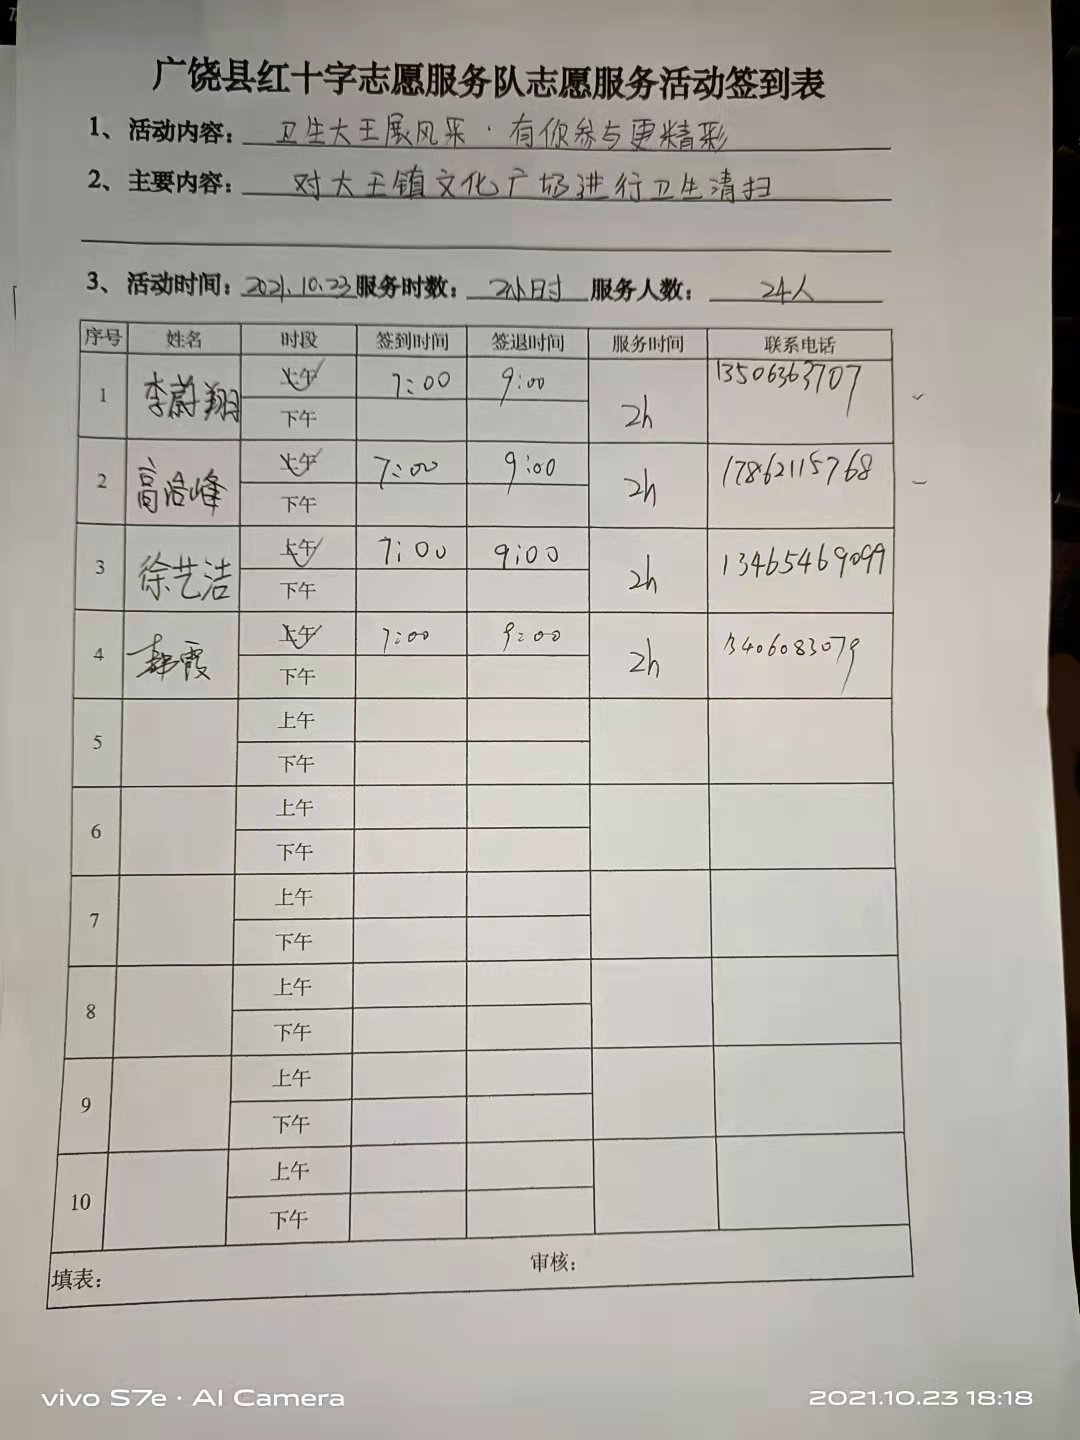 广饶县红十字志愿服务队志愿服务活动签到表
1、活动内容：卫生大王展风采·有你参与更精彩
2、主要内容：对大王镇文化广场进行卫生清扫
3、活动时间：2021.10.23 服务时数：2小时 服务人数：24人
序号 姓名 时段 签到时间 签退时间 服务时间 联系电话
1 李蔚翔 上午 7:00 9:00 2h 13506363707
下午
2 高浩峰 上午 7:00 9:00 2h 17862115768
下午
3 徐艺洁 上午 7:00 9:00 2h 13465469099
下午
4 上午 7:00 9:00 2h 13406083079
下午
5 上午
下午
6 上午
下午
7 上午
下午
8 上午
下午
9 上午
下午
10 上午
下午
填表： 审核：
vivo S7e · AI Camera 2021.10.23 18:18